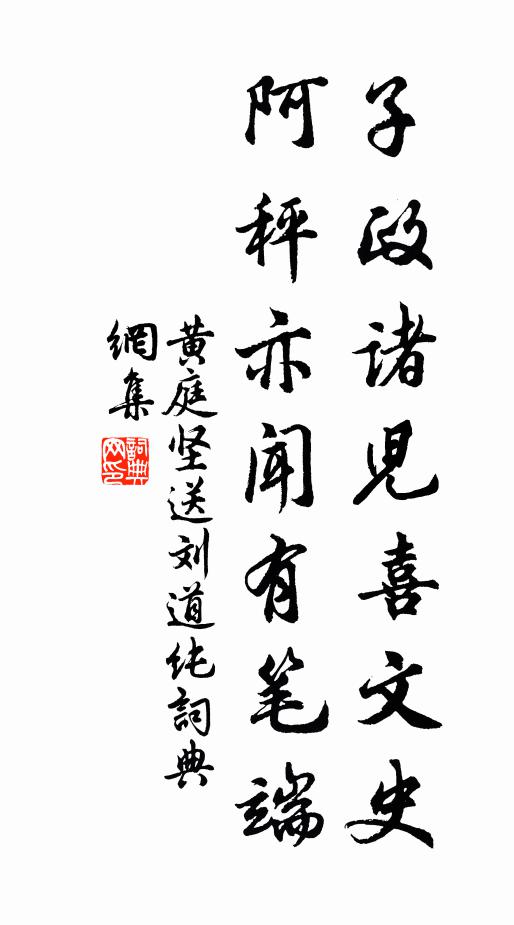 子政诸児喜文史
阿秤亦闻有笔端
黄庭坚送刘道纯詞典
網集
詞典
网印